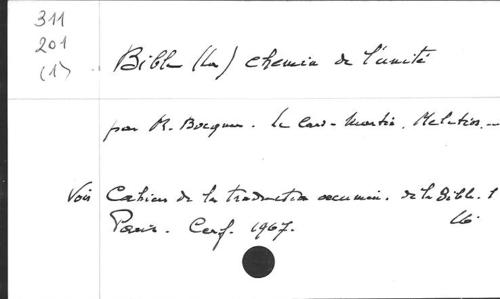 311
201
(1)
Bible (La) chemin de l'unité
par M. Bocquer. Le card. Martin. Meletios. ...
Voir Cahiers de la traduction oecumén. de la Bible. 1
Paris. Cerf. 1967.